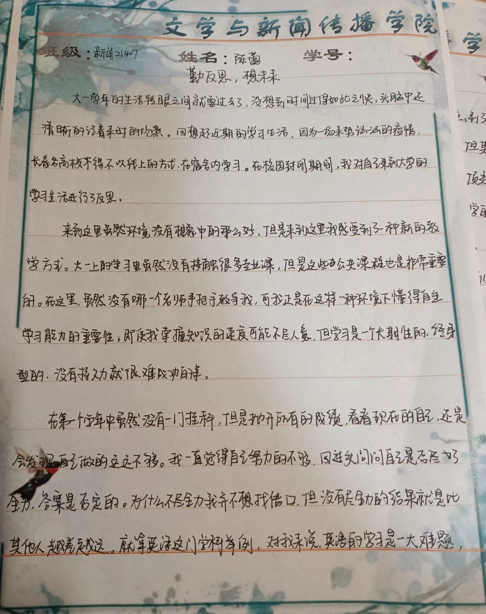 文学与新闻传播学院
班级：新闻21407 姓名：陈菡 学号：
勤反思，穗未来
大一学年的生活转眼之间就要过去了，没想到时间过得如此之快，头脑中还
清晰的记着来时的场景。回想起近期的学习生活，因为一场来势汹汹的疫情，
长春各高校不得不以线上的方式，在宿舍内学习。在校园封闭期间，我对自己来到大学的
学习生活进行了反思。
来到这里虽然环境没有想象中的那么好，但是来到这里我感受到了一种新的教
学方式。大一上的学习里虽然没有接触很多专业课，但是这些公共课程也是非常重要
的。在这里，虽然没有哪一个老师手把手教导我，可我正是在这样一种环境下懂得自主
学习能力的重要性，即使我掌握知识的速度可能不尽人意，但学习是一个长期性的，经验
型的，没有投入就很难成功的事。
在第一个学年中虽然没有一门挂科，但是抛开所有的成绩，看看现在的自己，还是
会发现自己做的远远不够。我一直觉得自己努力的不够，回过头问问自己是否尽力了
全力，答案是否定的。为什么不尽全力我并不想找借口，但没有尽全力的结果就是比
其他人越差越远。就拿英语这门学科举例，对我来说，英语的学习是一大难题，
学